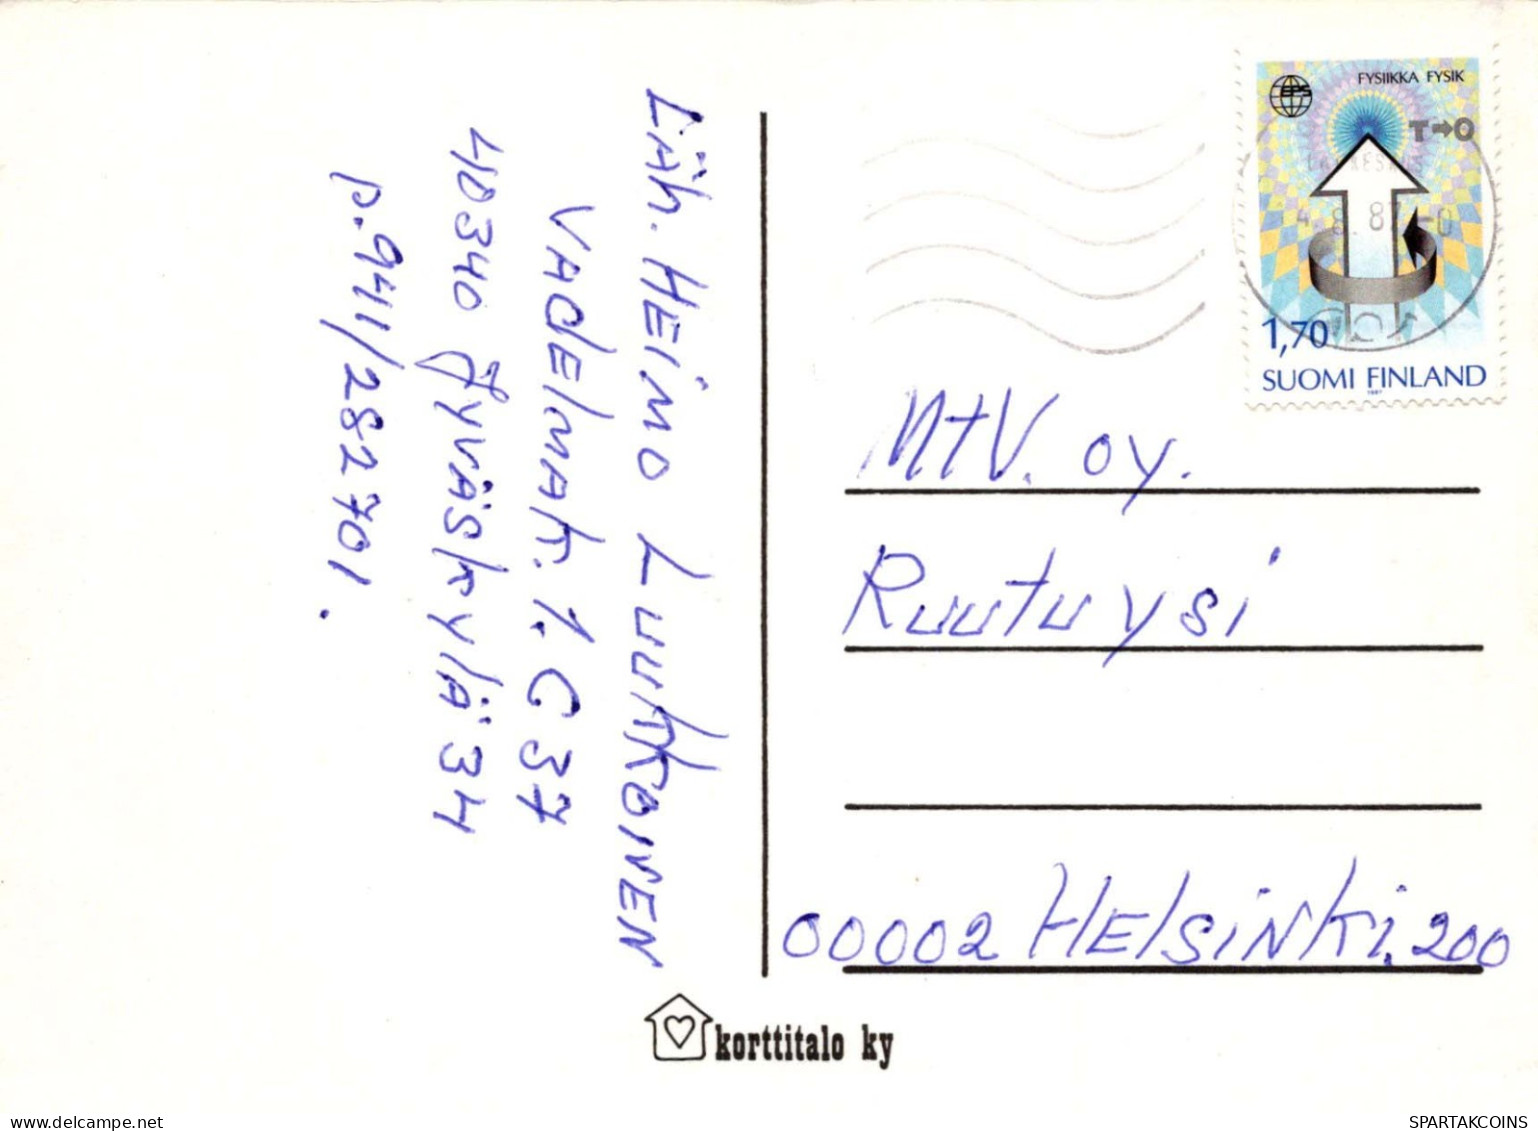 Läh. HEimo LuukkoiNEN
VAdElmAk. 1. C 37
40340 JyväskylÄ 34
p. 941/282701.
FYSIIKKA FYSIK
EPS
T→O
4.8.87
1,70
SUOMI FINLAND
1987
MtV. oy.
Ruutuysi
00002 HElsiNki. 200
korttitalo ky
SPARTAKCOINS